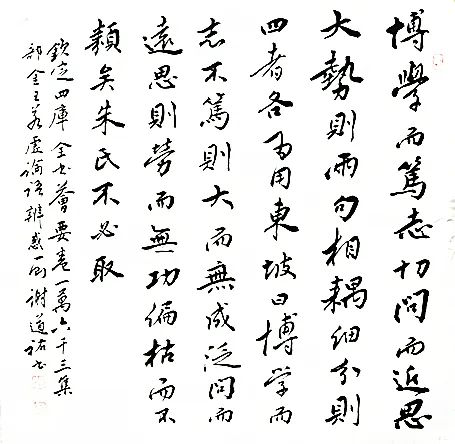 博學而篤志切問而近思
大勢則兩句相耦細分則
四者各為用東坡曰博学而
志不篤則大而無成泛問而
遠思則勞而無功偏枯而不
類矣朱氏不必取
欽定四庫全書薈要卷一萬六千三集
部金王若虛論語辨惑一則謝道祐书